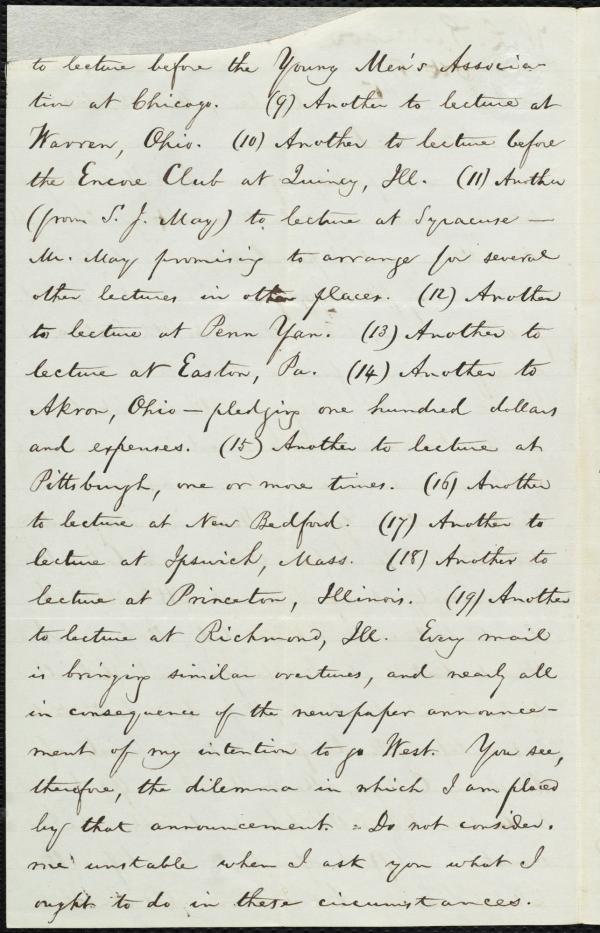 to lecture before the Young Men's Associa-
tion at Chicago. (9) Another to lecture at
Warren, Ohio. (10) Another to lecture before
the Encore Club at Quincy, Ill. (11) Another
(from S. J. May) to lecture at Syracuse —
Mr. May promising to arrange for several
other lectures in other places. (12) Another
to lecture at Penn Yan. (13) Another to
lecture at Easton, Pa. (14) Another to
Akron, Ohio — pledging one hundred dollars
and expenses. (15) Another to lecture at
Pittsburgh, one or more times. (16) Another
to lecture at New Bedford. (17) Another to
lecture at Ipswich, Mass. (18) Another to
lecture at Princeton, Illinois. (19) Another
to lecture at Richmond, Ill. Every mail
is bringing similar overtures, and nearly all
in consequence of the newspaper announce-
ment of my intention to go West. You see,
therefore, the dilemma in which I am placed
by that announcement. Do not consider
me unstable when I ask you what I
ought to do in these circumstances.